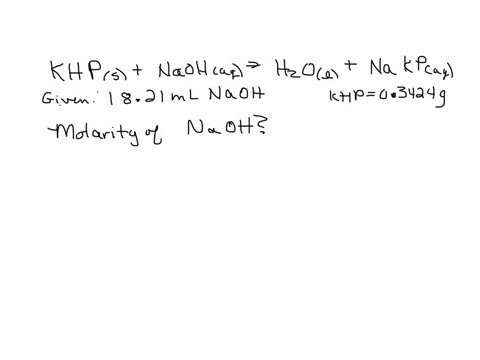 KHP(s) + NaOH(aq) → H₂O(l) + NaKP(aq)
Given: 18.21 mL NaOH KHP = 0.3424g
Molarity of NaOH?